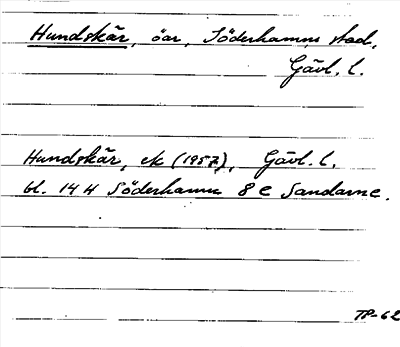 Hundskär, öar, Söderhamns stad,
Gävl. l.
Hundskär, ek (1957), Gävl. l.
bl. 14 H Söderhamn 8 e Sandarne.
TP-62